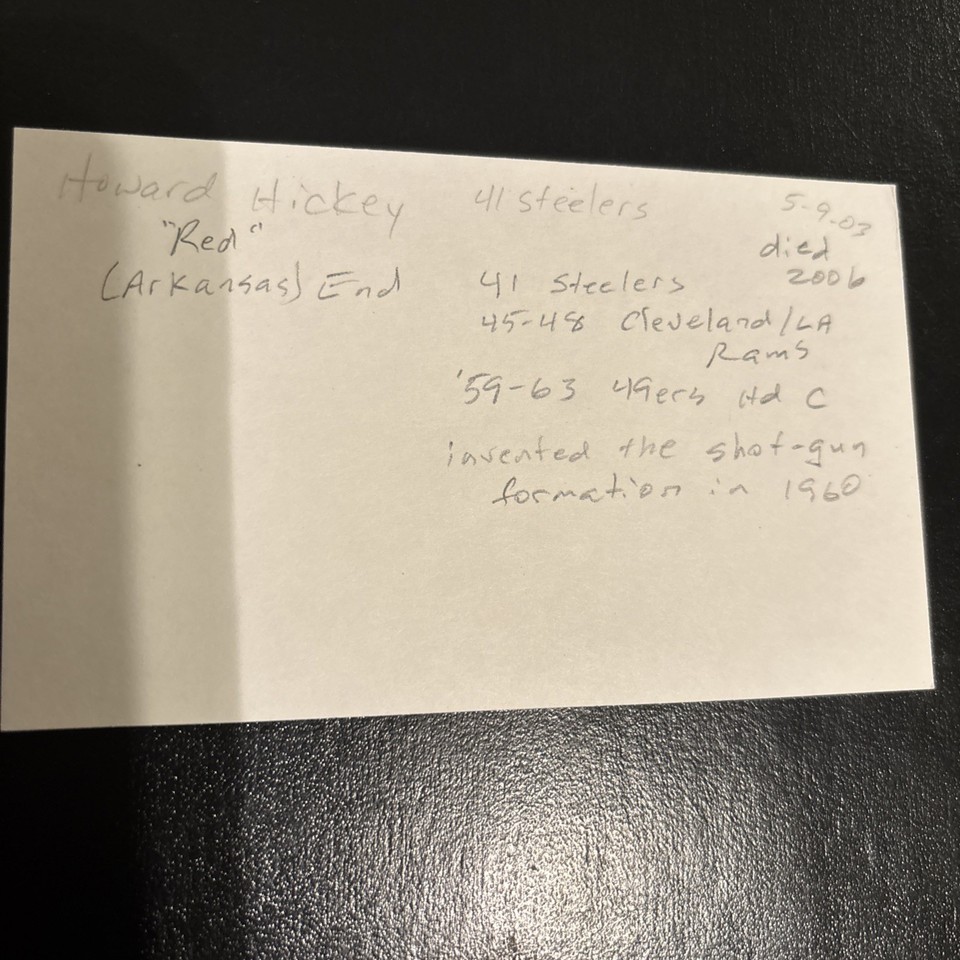 Howard Hickey 41 Steelers 5-9-03
"Red" died
(Arkansas) End 41 Steelers 2006
45-48 Cleveland/LA
Rams
'59-63 49ers Hd C
invented the shot-gun
formation in 1960